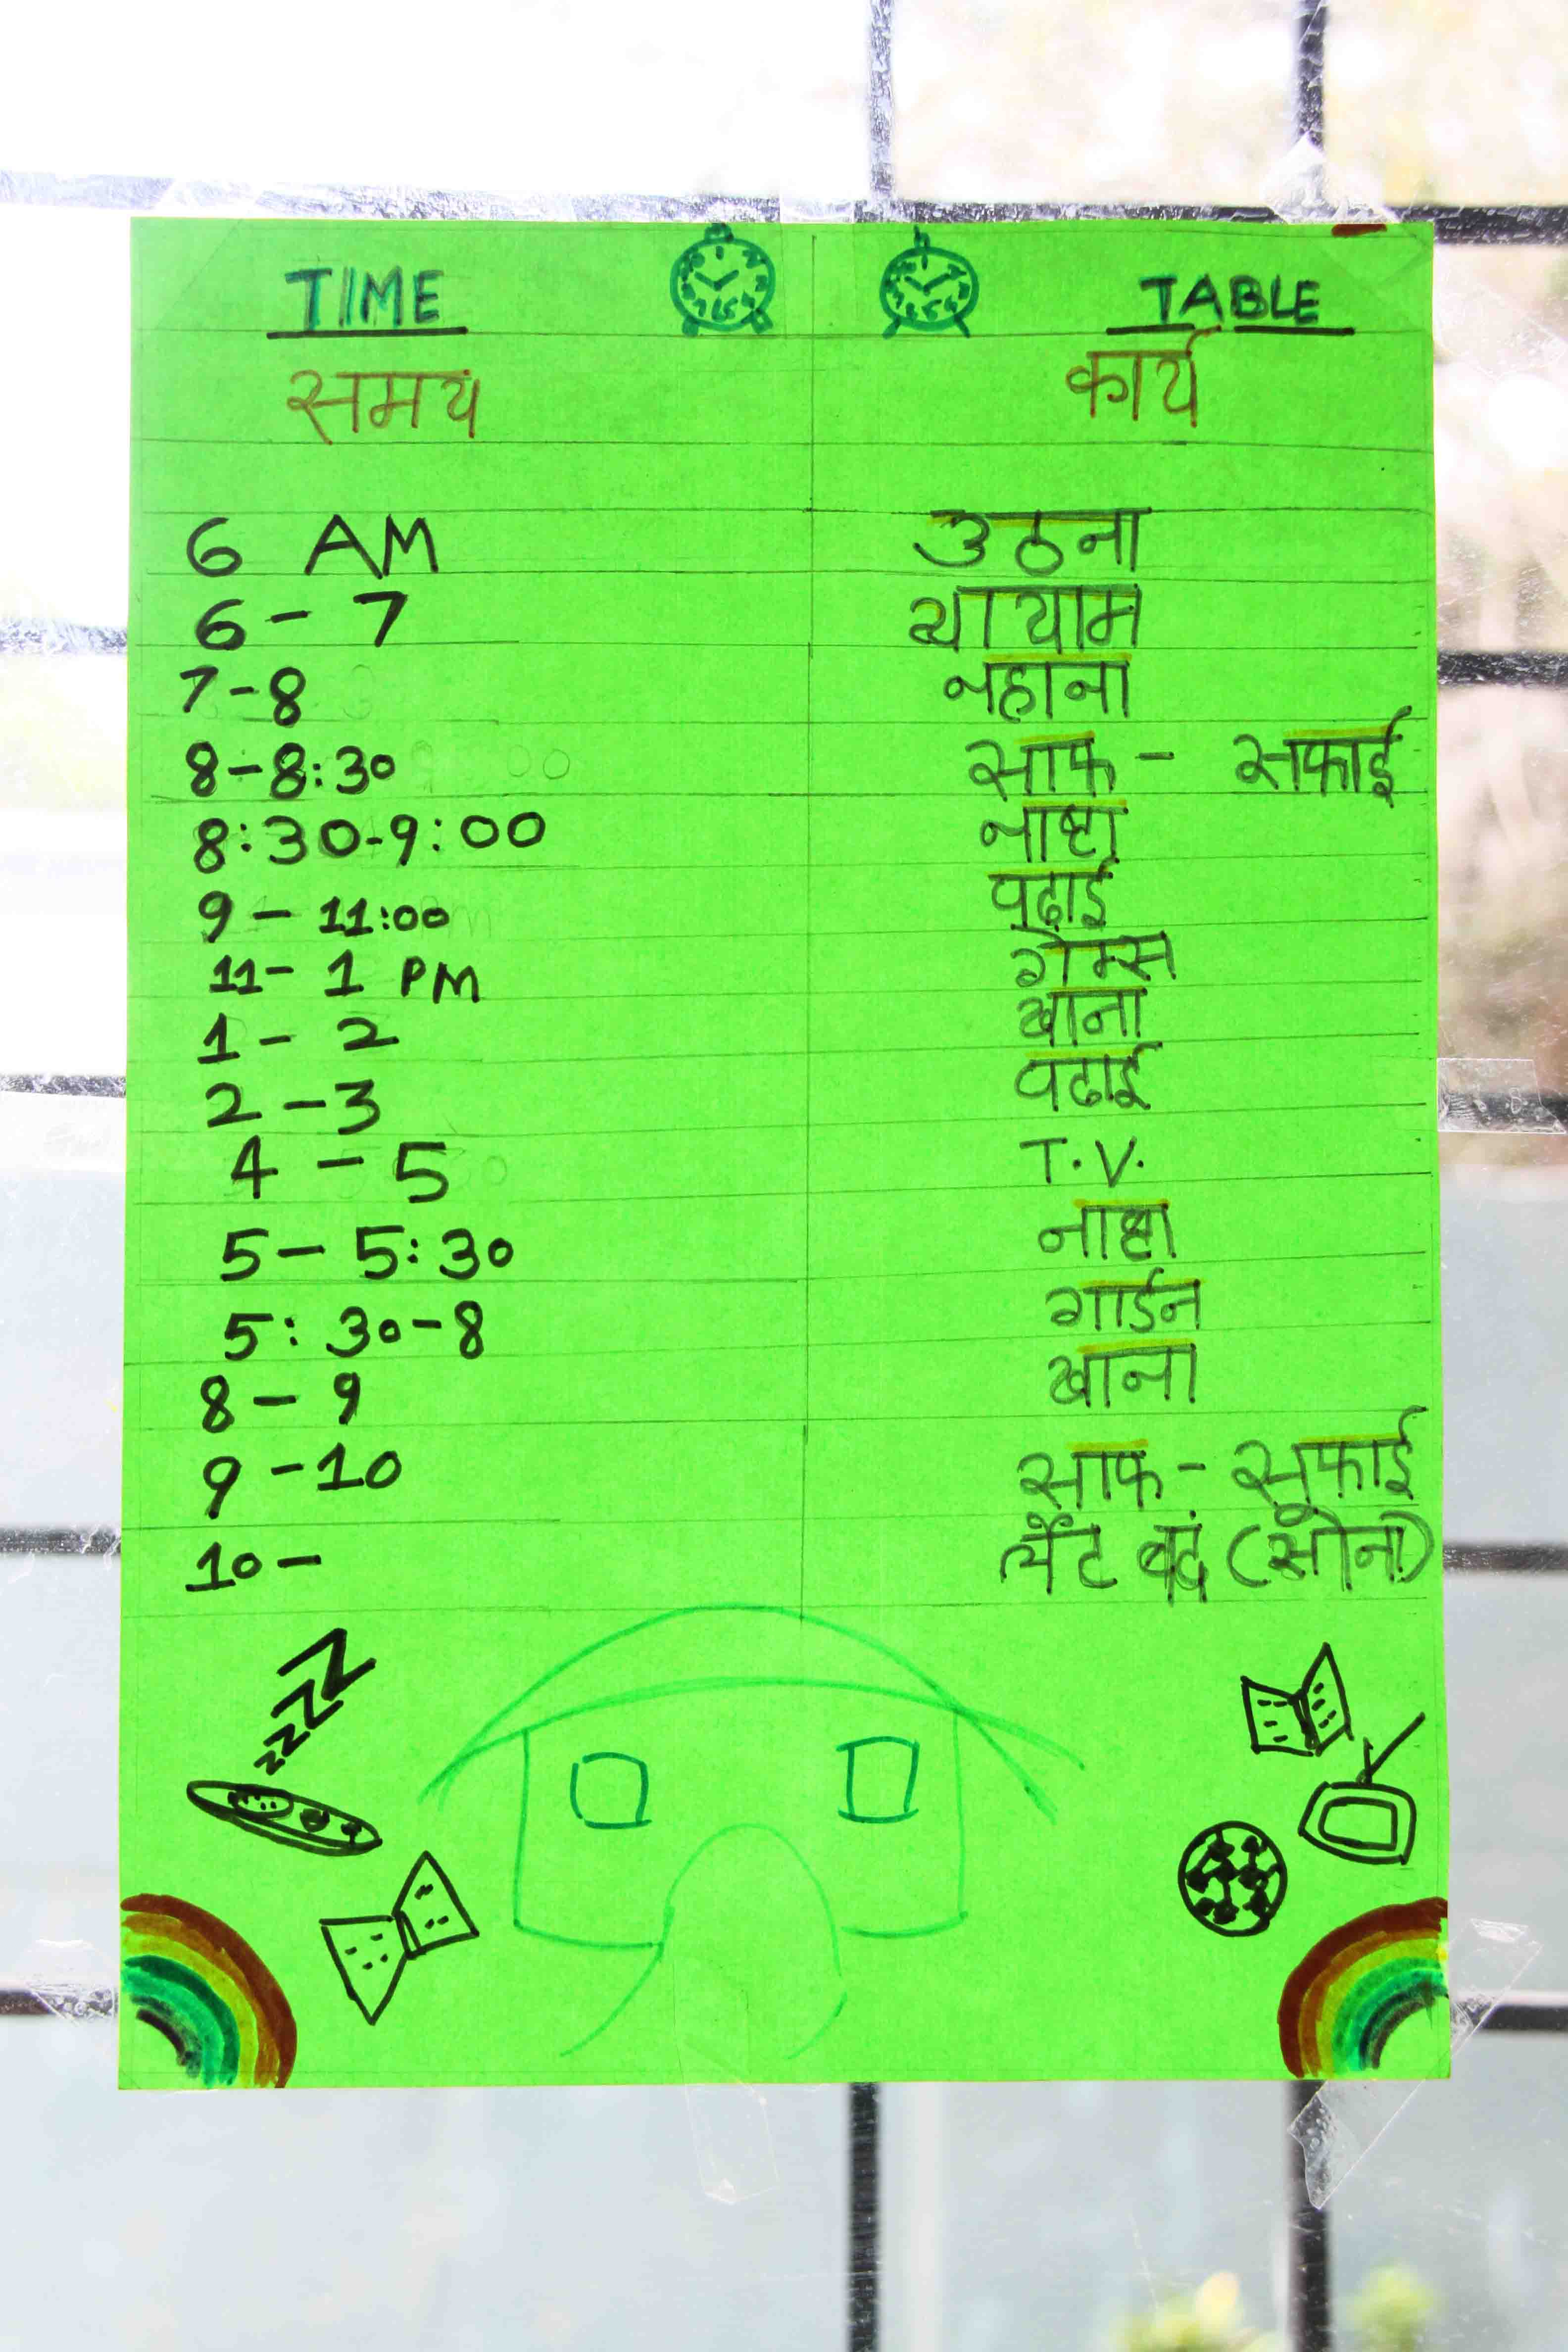 TIME TABLE
समय कार्य
6 AM उठना
6 - 7 व्यायाम
7-8 नहाना
8-8:30 साफ - सफाई
8:30-9:00 नाश्ता
9 - 11:00 पढाई
11- 1 PM गेम्स
1 - 2 खाना
2 -3 पढाई
4 - 5 T.V.
5 - 5:30 नाश्ता
5:30-8 गार्डन
8 - 9 खाना
9 -10 साफ - सफाई
10 - बदं (सोना)
zzzZZ